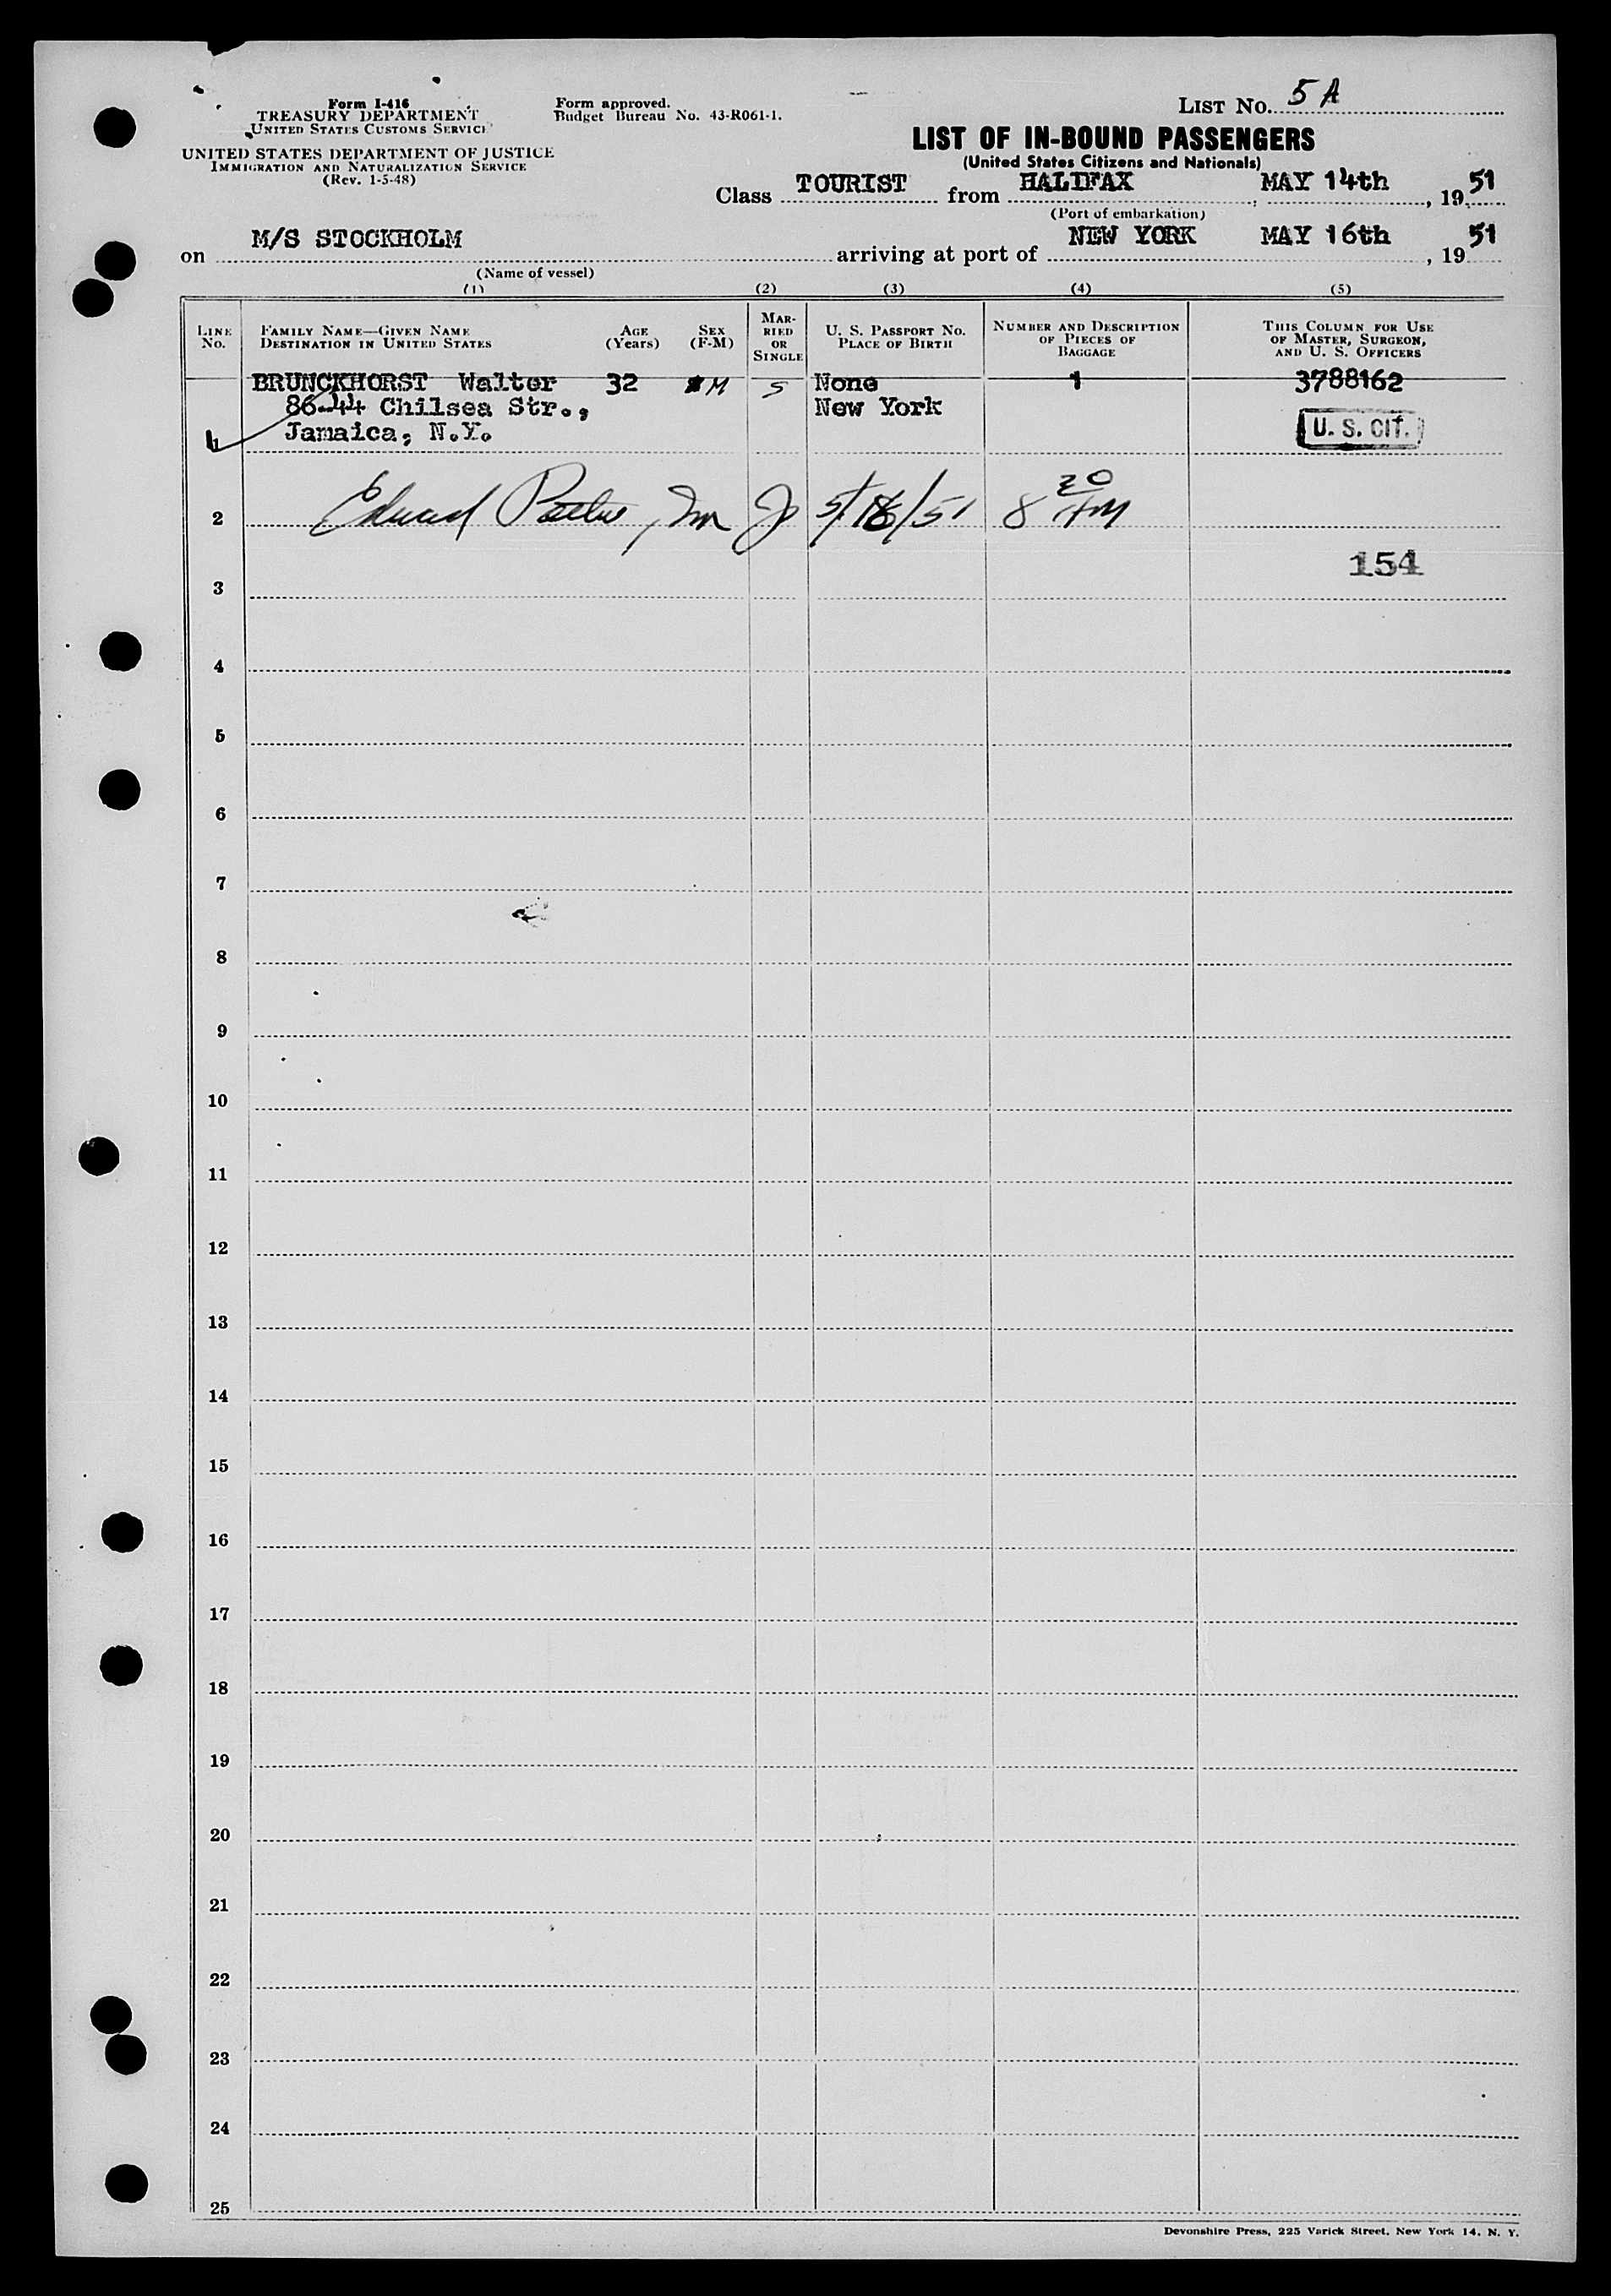 Form I-416
TREASURY DEPARTMENT
UNITED STATES CUSTOMS SERVICE
UNITED STATES DEPARTMENT OF JUSTICE
IMMIGRATION AND NATURALIZATION SERVICE
(Rev. 1-5-48)
Form approved.
Budget Bureau No. 43-R061-1.
LIST NO. 5 A
LIST OF IN-BOUND PASSENGERS
(United States Citizens and Nationals)
Class TOURIST from HALIFAX, MAY 14th, 1951
(Port of embarkation)
on M/S STOCKHOLM arriving at port of NEW YORK MAY 16th, 1951
(Name of vessel)
(1) (2) (3) (4) (5)
LINE NO. FAMILY NAME—GIVEN NAME DESTINATION IN UNITED STATES AGE (Years) SEX (F-M) MARRIED OR SINGLE U. S. PASSPORT NO. PLACE OF BIRTH NUMBER AND DESCRIPTION OF PIECES OF BAGGAGE THIS COLUMN FOR USE OF MASTER, SURGEON, AND U. S. OFFICERS
BRUNCKHORST Walter 32 M S None 1 3788162
86-44 Chilsea Str., New York
1 Jamaica, N.Y. U. S. CIT.
2 Edward 5/16/51 8 20 AM
154
3
4
5
6
7
8
9
10
11
12
13
14
15
16
17
18
19
20
21
22
23
24
25
Devonshire Press, 225 Varick Street, New York 14, N. Y.